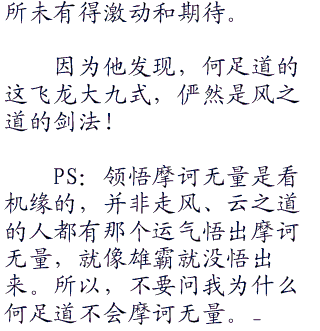 所未有得激动和期待。
因为他发现，何足道的
这飞龙大九式，俨然是风之
道的剑法！
PS：领悟摩诃无量是看
机缘的，并非走风、云之道
的人都有那个运气悟出摩诃
无量，就像雄霸就没悟出
来。所以，不要问我为什么
何足道不会摩诃无量。_